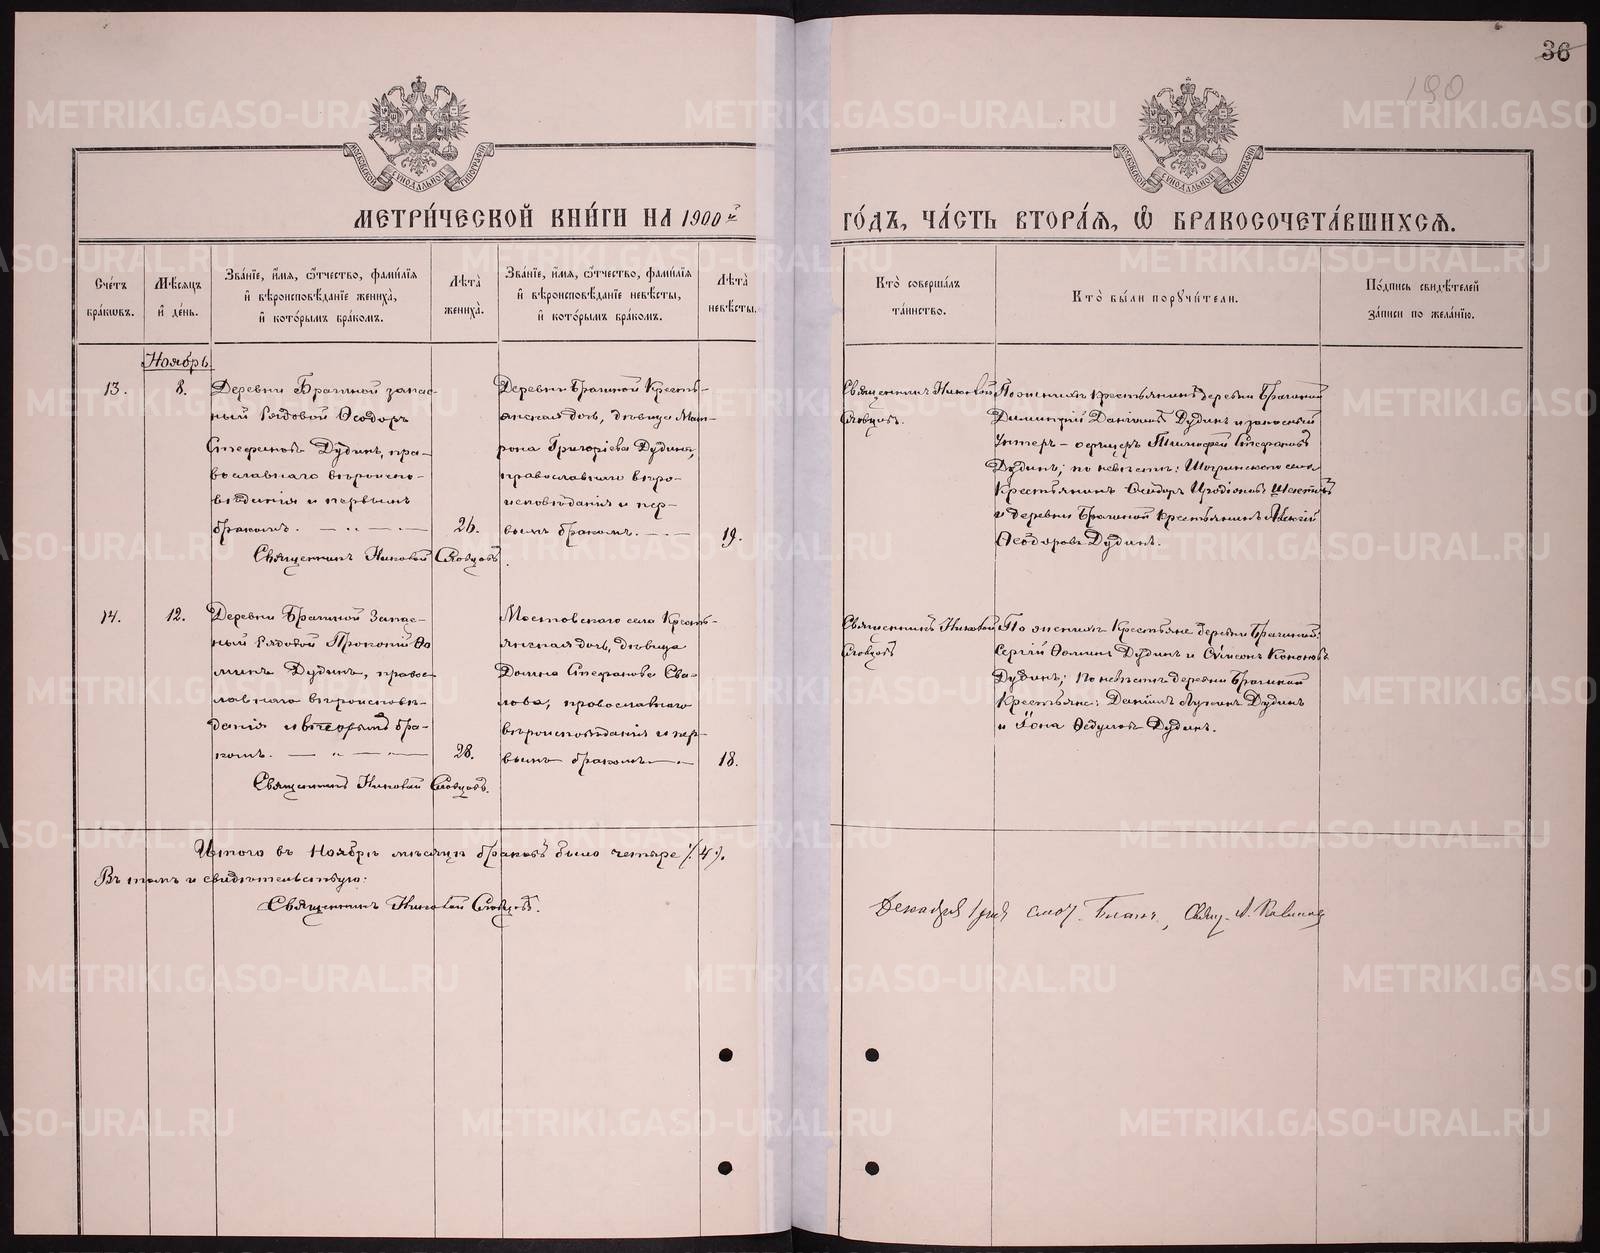 36
190
МЕТРИ́ЧЕСКОЙ КНИ́ГИ НА 1900 й
ГО́ДЪ, ЧА́СТЬ ВТОРА́Я, Ѡ БРАКОСОЧЕТА́ВШИХСЯ.
Сче́тъ бра́ковъ.
Мѣ́сяцъ и де́нь.
Зва́нїе, и́мя, ѻ́тчество, фами́лїя
и҆ вѣроисповѣ́данїе жениха̀,
и҆ кото́рымъ бра́комъ.
Лѣта̀ жениха̀.
Зва́нїе, и́мя, ѻ́тчество, фами́лїя
и҆ вѣроисповѣ́данїе невѣ́сты,
и҆ кото́рымъ бра́комъ.
Лѣта̀ невѣ́сты.
Кто̀ соверша́лъ
та́инство.
Кто̀ бы́ли поручи́тели.
По́дпись свидѣ́телей
за́писи по жела́нїю.
Ноябрь
13.
8.
Деревни Брагиной запас-
ный рядовой Ѳеодоръ
Стефановъ Дудинъ, пра-
вославнаго вѣроиспо-
вѣданія и первымъ
бракомъ.
26.
Священникъ Николай Словцовъ.
Деревни Брагиной Кресть-
янская дочь, дѣвица Мат-
рона Григоріева Дудина,
православнаго вѣро-
исповѣданія и пер-
вымъ бракомъ.
19.
Священникъ Николай
Словцовъ.
По женихѣ крестьянинъ деревни Брагиной
Димитрій Даніиловъ Дудинъ и запасный
Унтеръ-офицеръ Тимофей Стефановъ
Дудинъ; по невѣстѣ: Шогринскаго села
Крестьянинъ Ѳеодоръ Иродіоновъ
и деревни Брагиной Крестьянинъ Алексій
Ѳеодоровъ Дудинъ.
14.
12.
Деревни Брагиной Запас-
ный рядовой Прокопій Ѳо
минъ Дудинъ, правос-
лавнаго вѣроисповѣ-
данія и вторымъ бра-
комъ.
28.
Священникъ Николай Словцовъ.
Мостовского села Кресть-
янская дочь, дѣвица
Домна Стефанова Сва-
лова, православнаго
вѣроисповѣданія и пер-
вымъ бракомъ
18.
Священникъ Николай
Словцовъ
По женихѣ Крестьяне деревни Брагиной:
Сергій Ѳоминъ Дудинъ и Сѵмеонъ Кононовъ
Дудинъ; по невѣстѣ деревни Брагиной
Крестьяне: Даніилъ Лукинъ Дудинъ
и Іона Ѳедуловъ Дудинъ.
Итого въ Ноябрѣ мѣсяцѣ браковъ было четыре /4/.
Въ томъ и свидѣтельствую:
Священникъ Николай Словцовъ.
Декабря 1 дня
METRIKI.GASO-URAL.RU